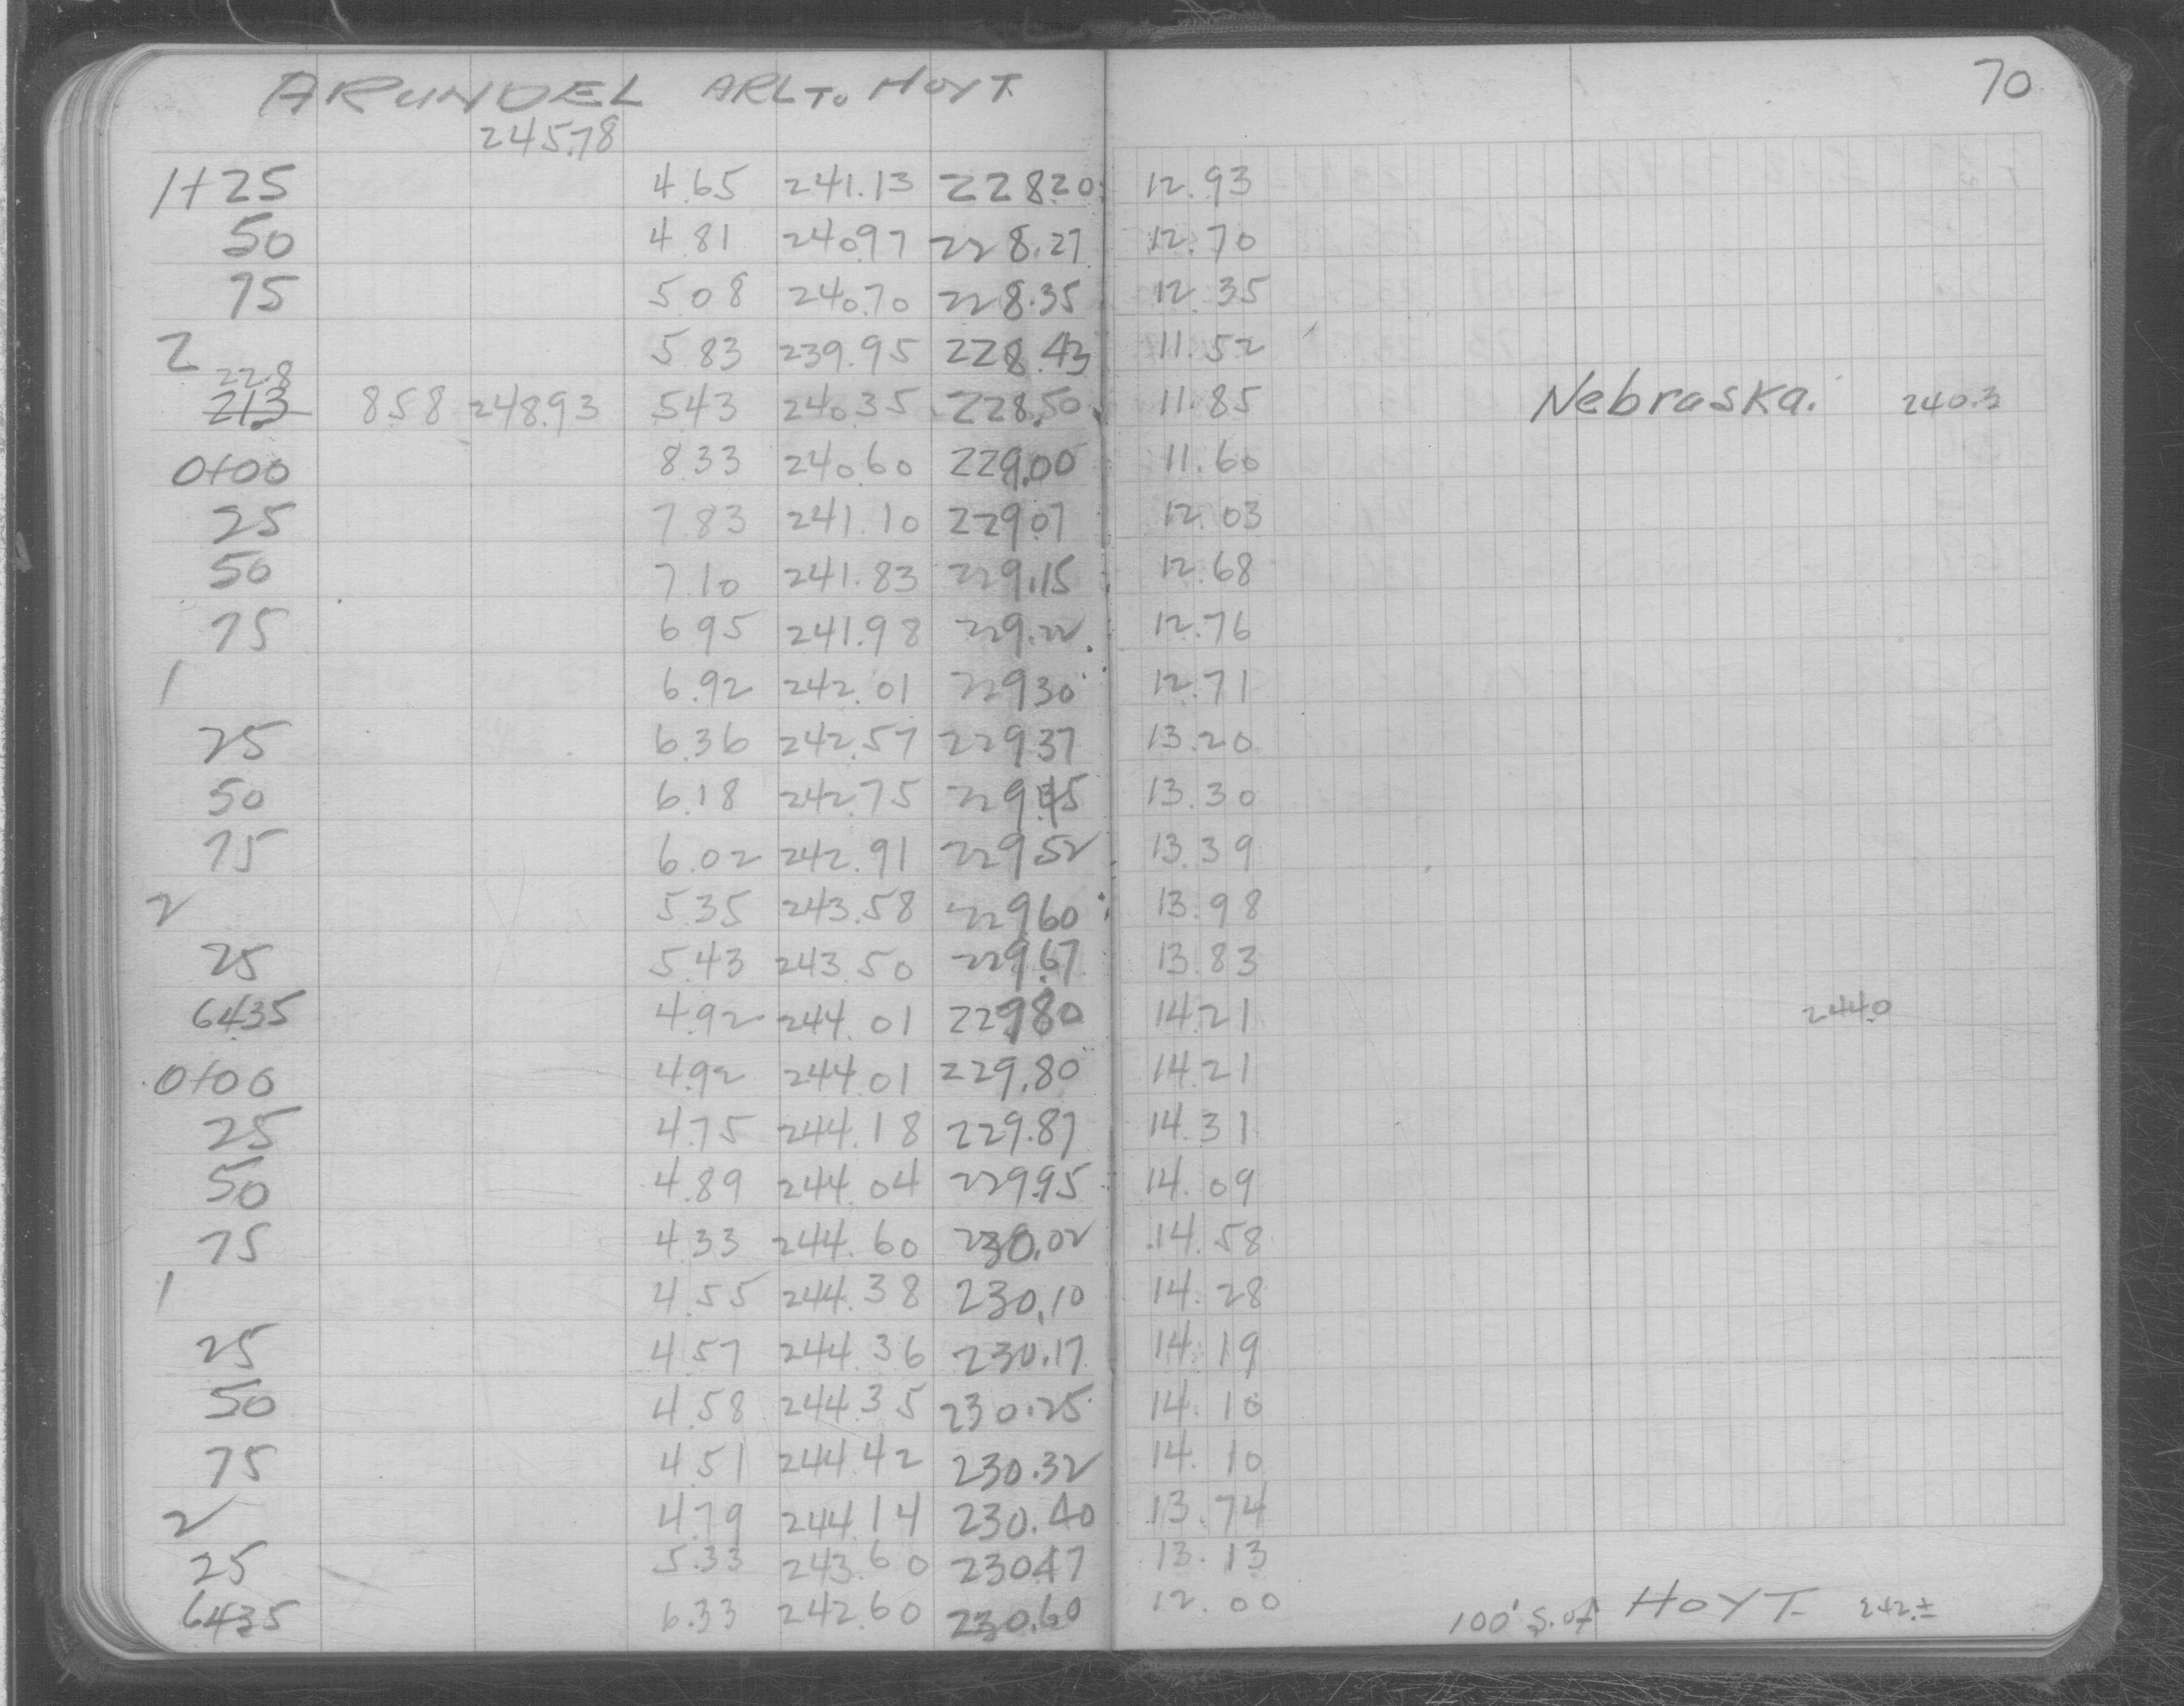 ARUNDEL ARL To HOYT. 70
245.78
1+25 4.65 241.13 228.20 12.93
50 4.81 240.97 228.27 12.70
75 5.08 240.70 228.35 12.35
2 5.83 239.95 228.43 11.52
22.8
21.3 8.58 248.93 5.43 240.35 228.50 11.85 Nebraska. 240.3
0+00 8.33 240.60 229.00 11.60
25 7.83 241.10 229.07 12.03
50 7.10 241.83 229.15 12.68
75 6.95 241.98 229.22 12.76
1 6.92 242.01 229.30 12.71
25 6.36 242.57 229.37 13.20
50 6.18 242.75 229.45 13.30
75 6.02 242.91 229.52 13.39
2 5.35 243.58 229.60 13.98
25 5.43 243.50 229.67 13.83
64.35 4.92 244.01 229.80 14.21 244.0
0+00 4.92 244.01 229.80 14.21
25 4.75 244.18 229.87 14.31
50 4.89 244.04 229.95 14.09
75 4.33 244.60 230.02 14.58
1 4.55 244.38 230.10 14.28
25 4.57 244.36 230.17 14.19
50 4.58 244.35 230.25 14.10
75 4.51 244.42 230.32 14.10
2 4.79 244.14 230.40 13.74
25 5.33 243.60 230.47 13.13
64.35 6.33 242.60 230.60 12.00 100' S. of HOYT. 242.±